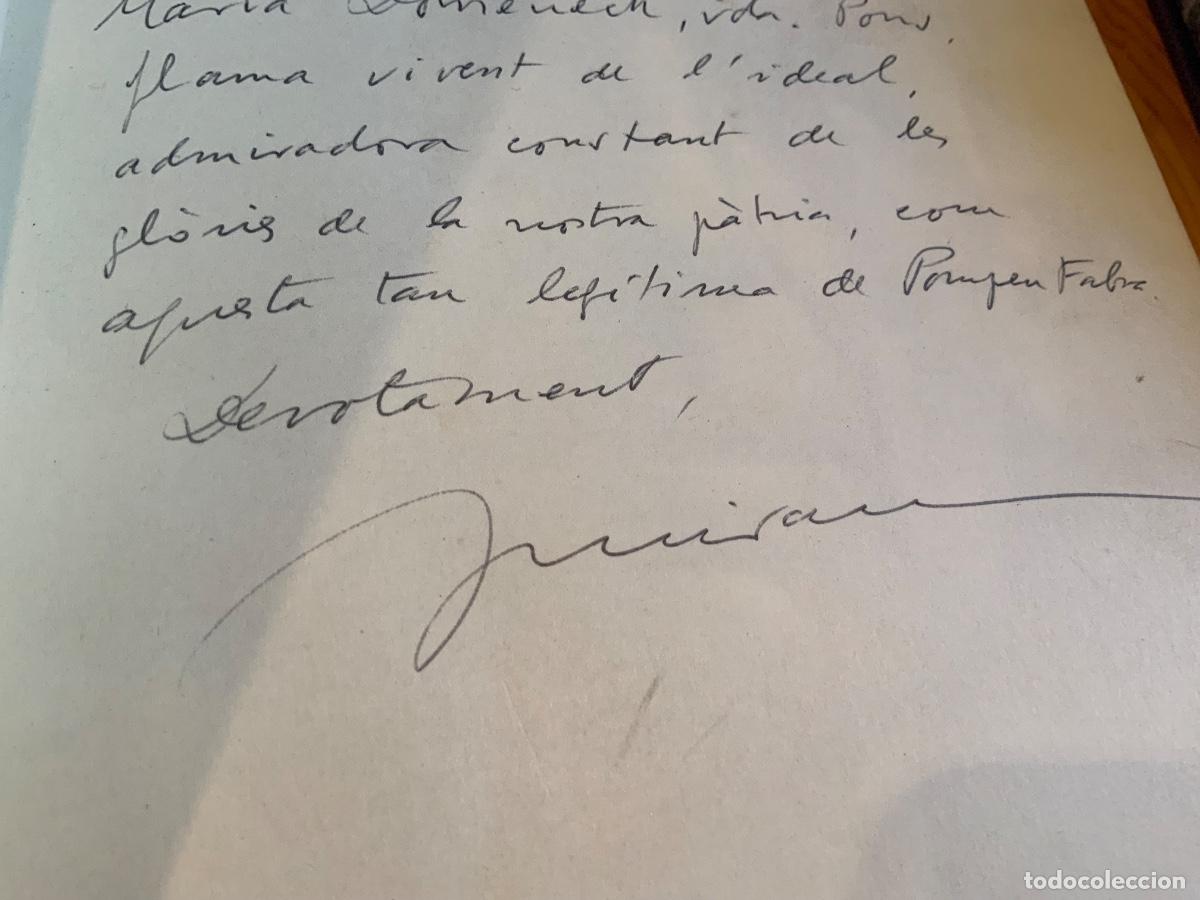 Maria Domenech, vda. Pons,
flama vivent de l'ideal,
admiradora constant de les
glòries de la nostra pàtria, com
aquesta tan legítima de Pompeu Fabra.
Devotament,
todocoleccion